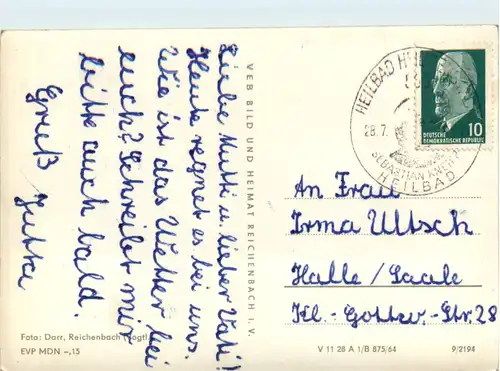 Liebe Mutti u. lieber Vati!
Heute regnet es bei uns.
Wie ist das Wetter bei
euch? Schreibet mir
bitte auch bald.
Gruß
Jutta
VEB BILD UND HEIMAT REICHENBACH I. V.
HEILBAD
28.7.
SEBASTIAN
HEILBAD
10
DEUTSCHE
DEMOKRATISCHE REPUBLIK
An Frau
Irma Ultsch
Halle/Saale
Kl.-Gottes-Str. 28
Foto: Darr, Reichenbach (Vogtl.)
EVP MDN –,15
V 11 28 A 1/B 875/64
9/2194